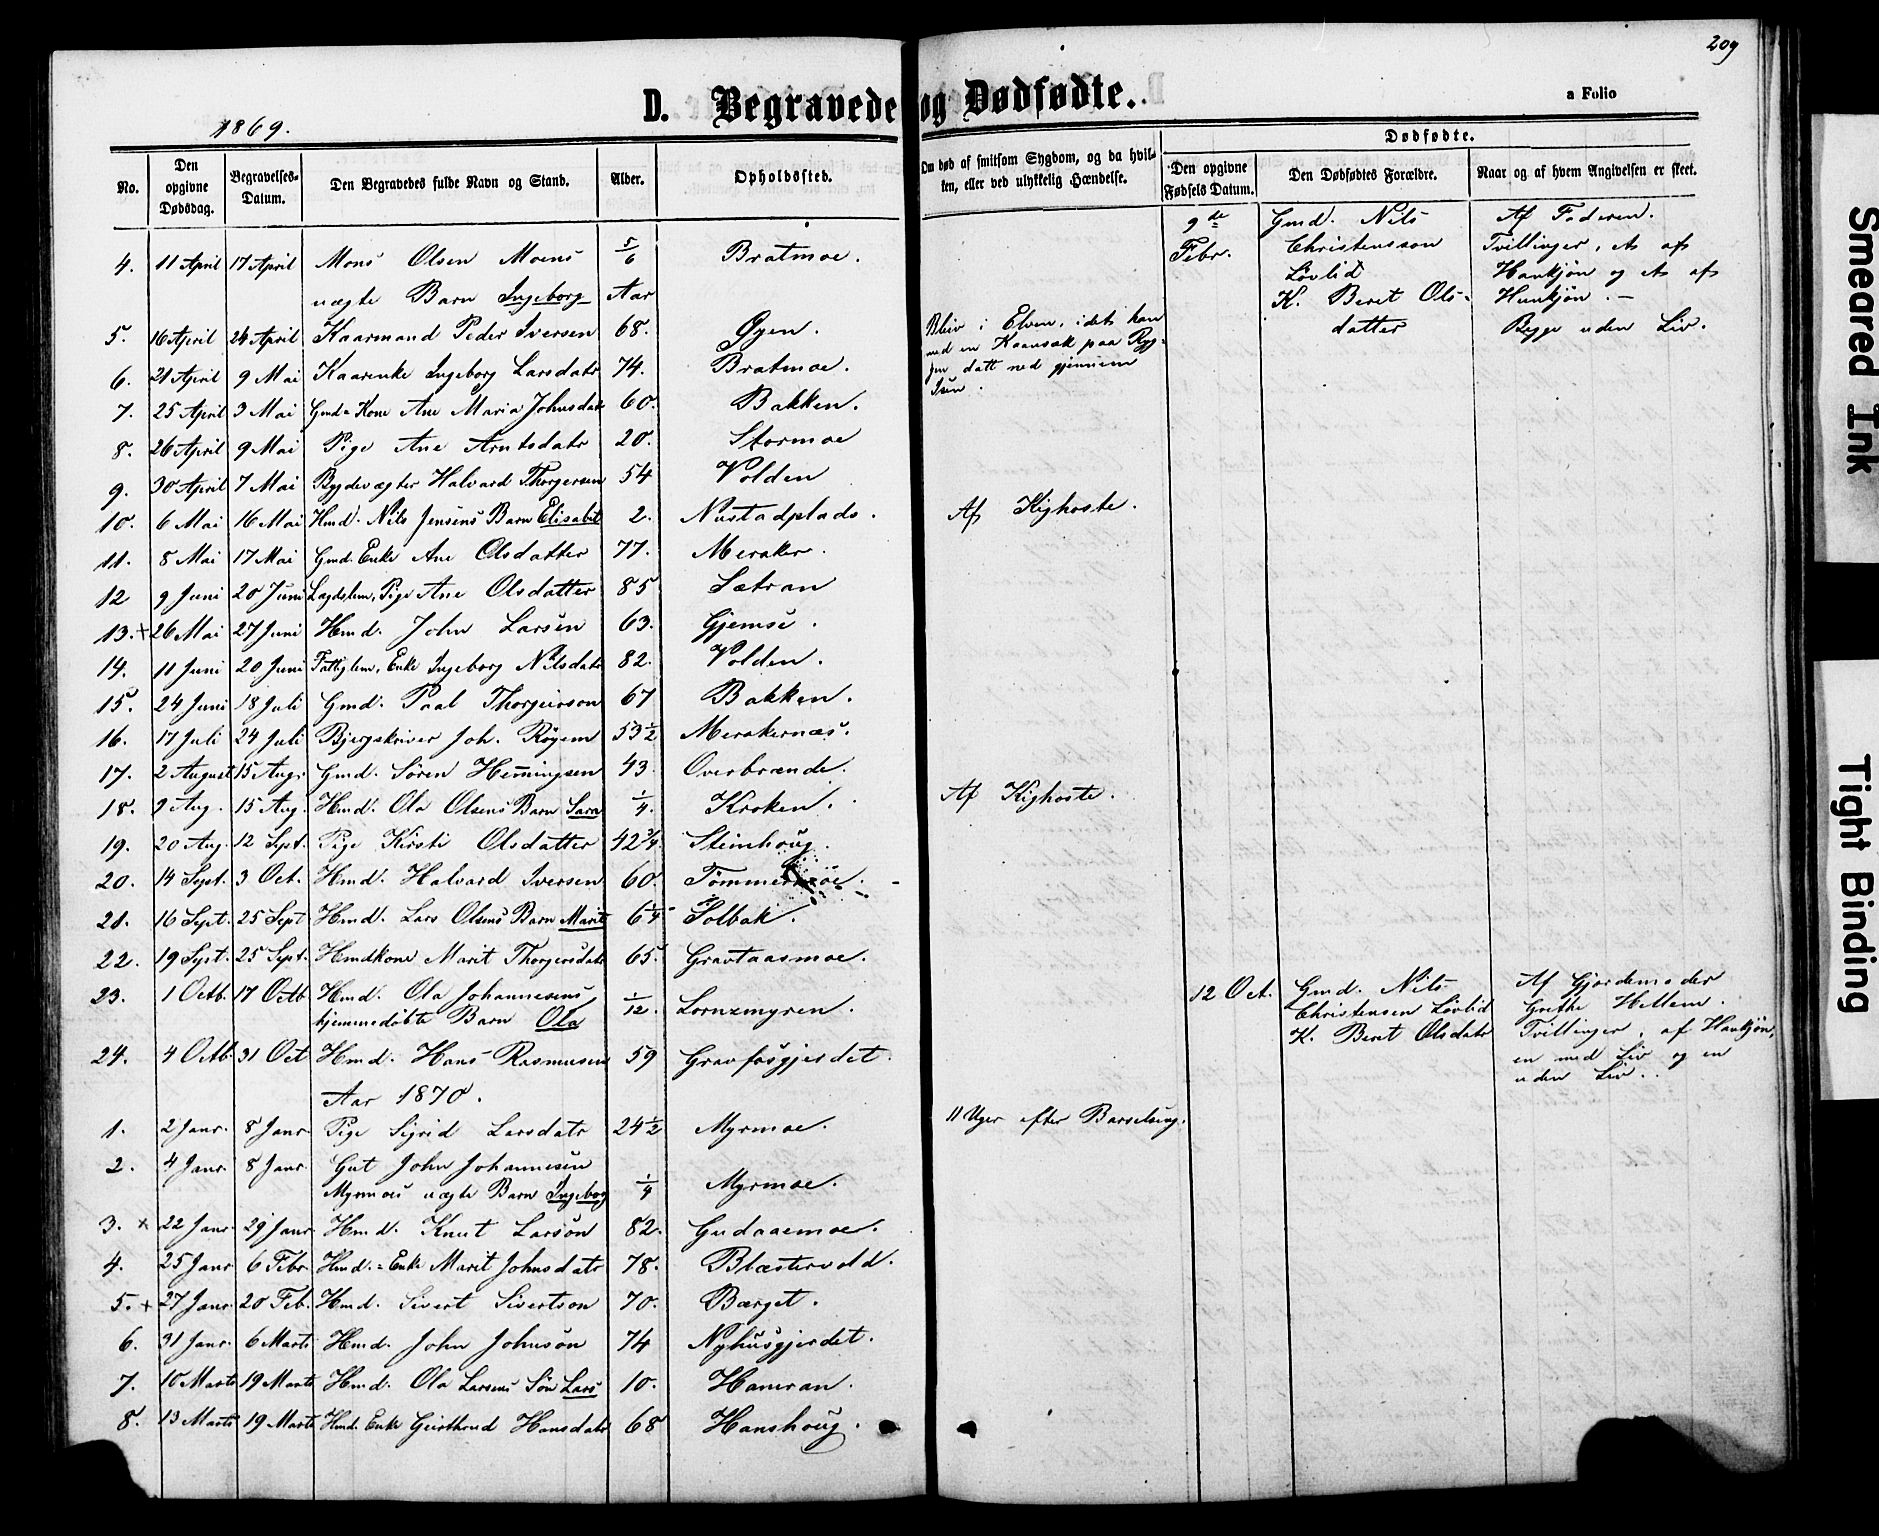 209
D. Begravede og Dødfødte.
a Folio
1869.
No. Den opgivne Dødsdag. Begravelses-Datum. Den Begravedes fulde Navn og Stand. Alder. Opholdssted. Om død af smitsom Sygdom, og da hvilken, eller ved ulykkelig Hændelse. Dødfødte. Den opgivne Fødsels Datum. Den Dødfødtes Forældre. Naar og af hvem Angivelsen er skeet.
4. 11 April 17 April Mons Olsen Moens 5/6 Bratmoe.
uægte Barn Ingeborg Aar
5. 16 April 24 April Kaarmand Peder Iversen 68. Øyen. Blev i Elven, idet han
med en Kaarnsæk paa Ryg-
gen datt ned gjennem
Isen.
6. 21 April 9 Mai Kaarenke Ingeborg Larsdatr 74. Bratmoe.
7. 25 April 3 Mai Gmd= Kone Ane Maria Johnsdatr 60. Bakken.
8. 26 April 9 Mai Pige Ane Arntsdatr 20. Stormoe
9. 30 April 7 Mai Bygdevægter Halvard Thorgersen 54 Volden
10. 6 Mai 16 Mai Hmd. Nils Jensens Barn Elisabet 2. Nustadplads. Af Kighoste.
11. 8 Mai 17 Mai Gmd. Enke Ane Olsdatter 77. Meraker.
12 9 Juni 20 Juni Lægdslem, Pige Ane Olsdatter 85 Sætran
13. + 26 Mai 27 Juni Hmd. John Larsen 63. Gjemse.
14. 11 Juni 20 Juni Fattiglem, Enke Ingeborg Nilsdatr 82. Volden.
15. 24 Juni 18 Juli Gmd. Paal Thorgersson 67 Bakken.
16. 17 Juli 24 Juli Bjergskriver Joh. Røyem 53 1/2 Merakernæs.
17. 2 August 15 Aug. Gmd. Sören Hemingsen 43 Overbrænde.
18. 9 Aug. 15 Aug. Hmd. Ola Olsens Barn Sara 1/4. Kroken. Af Kighoste.
19. 20 Aug. 12 Sept. Pige Kirsti Olsdatter 42 3/4. Steinhoug.
20. 14 Sept. 3 Oct. Hmd. Halvard Iversen 60. Tömmermoe.
21. 16 Sept. 25 Sept Hmd. Lars Olsens Barn Marit 6 1/4 Solbak.
22. 19 Sept. 25 Sept. Hmdkone Marit Thorgersdatr 65. Gravtaasmoe.
23. 1 Octb. 17 Octb Hmd. Ola Johannesens
hjemmedøbte Barn Ola 1/12. Lornzmyren.
24. 4 Octb. 31 Oct Hmd. Hans Rasmusen 59 Gravfosgjerdet.
Aar 1870.
1. 2 Janr. 8 Janr Pige Sigrid Larsdatr 24 1/2 Myrmoe. 11 Uger efter Barselseng.
2. 4 Janr 8 Janr. Gut John Johannesen
Myrmoes uægte Barn Ingeborg 1/4 Myrmoe.
3. x 22 Janr. 29 Janr Hmd. Knut Larsøn 82. Gudaaemoe.
4. 25 Janr 6 Febr Hmd.= Enke Marit Johnsdatr 78. Blæstervold.
5. + 27 Janr. 20 Feb. Hmd. Sivert Sivertson 70. Bærget.
6. 31 Janr. 6 Marts Hmd. John Johnsøn 74 Nyhusgjerdet.
7. 10 Marts 19 Marts Hmd. Ola Larsens Søn Lars 10. Hameran.
8. 13 Marts 19 Marts Hmd. Enke Gurthrud Hansdatr 68 Hanshoug.
9de
Febr. Gmd. Nils
Christensson
Løvlid
K. Beret Ols-
datter
Af Faderen.
Tvillinger, Et af
Hankjøn og Et af
Hunkjøn. –
Begge uden Liv.
12 Oct. Gmd. Nils
Christensen Løvlid
K. Beret Olsdatr
Af Gjordemoder
Grethe Hellem.
Tvillinger, af Hankjøn,
en med Liv og en
uden Liv.
Smeared Ink
Tight Binding